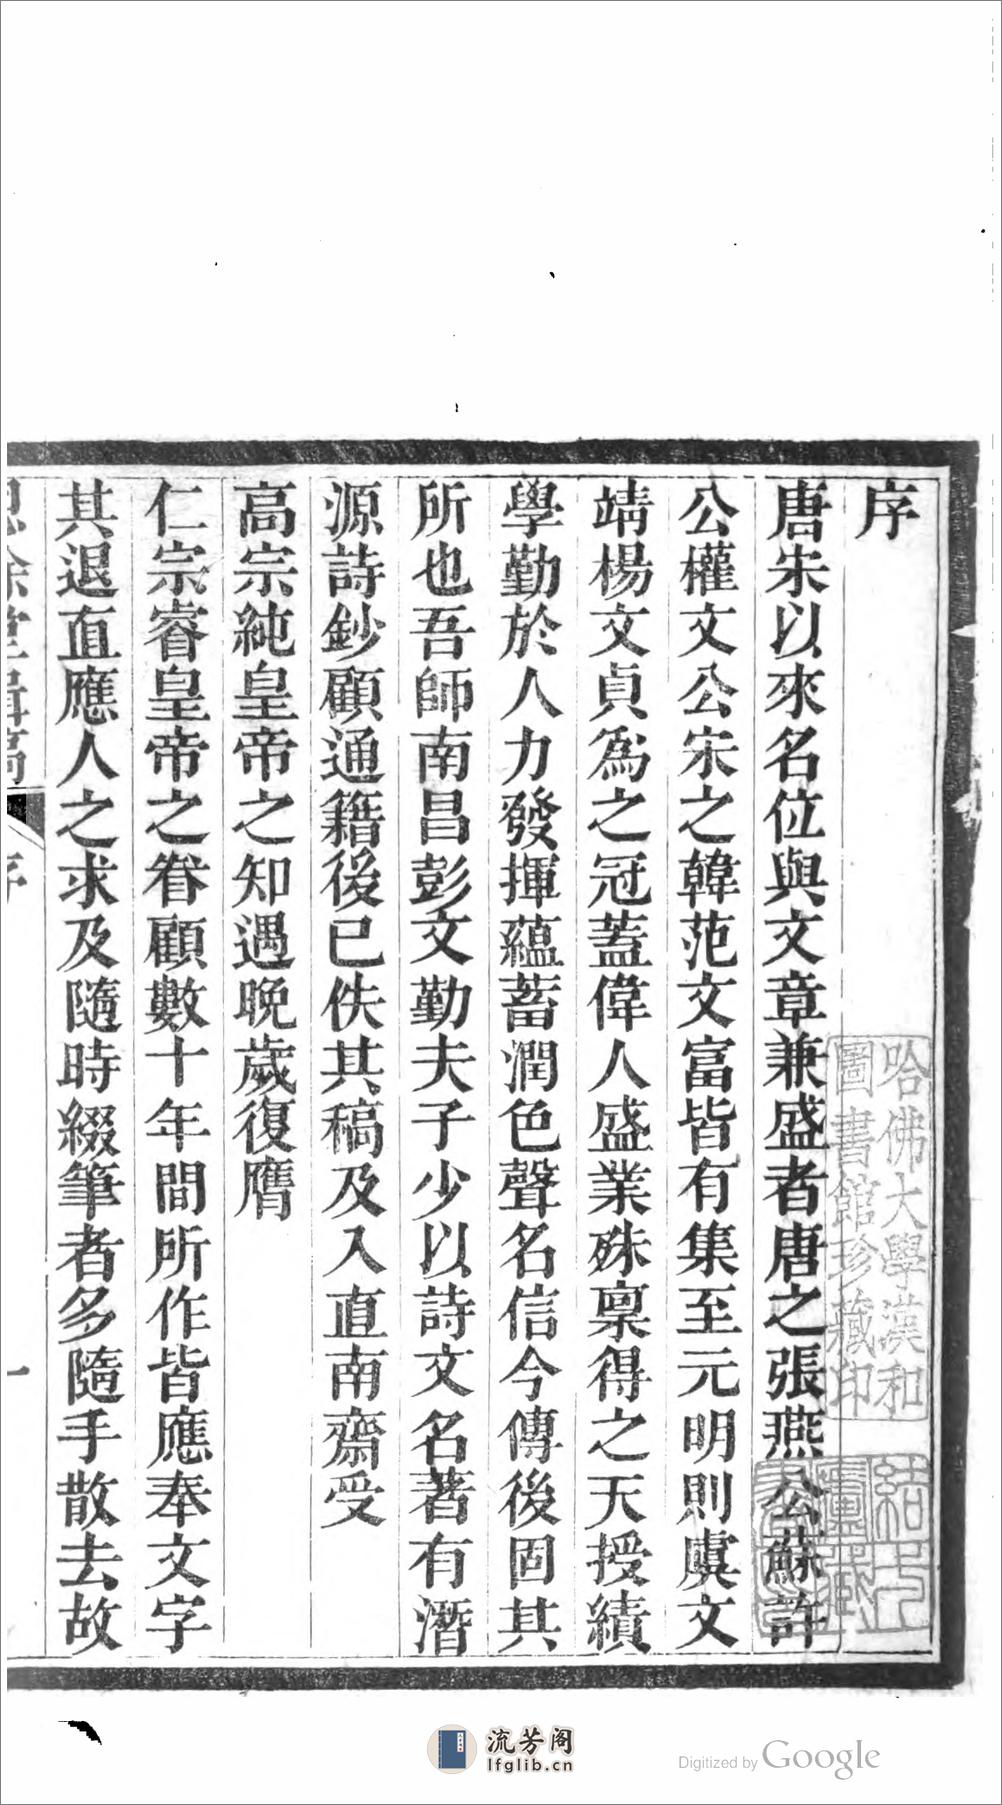 序
唐宋以來名位與文章兼盛者唐之張燕公蘇許
公權文公宋之韓范文富皆有集至元明則虞文
靖楊文貞爲之冠蓋偉人盛業殊稟得之天授績
學勤於人力發揮蘊蓄潤色聲名信今傳後固其
所也吾師南昌彭文勤夫子少以詩文名著有潛
源詩鈔顧通籍後已佚其稿及入直南齋受
高宗純皇帝之知遇晚歲復膺
仁宗睿皇帝之眷顧數十年間所作皆應奉文字
其退直應人之求及隨時綴筆者多隨手散去故
恩餘堂輯稿 序 一
哈佛大學漢和
圖書館珍藏印
流芳阁
lfglib.cn
Digitized by Google